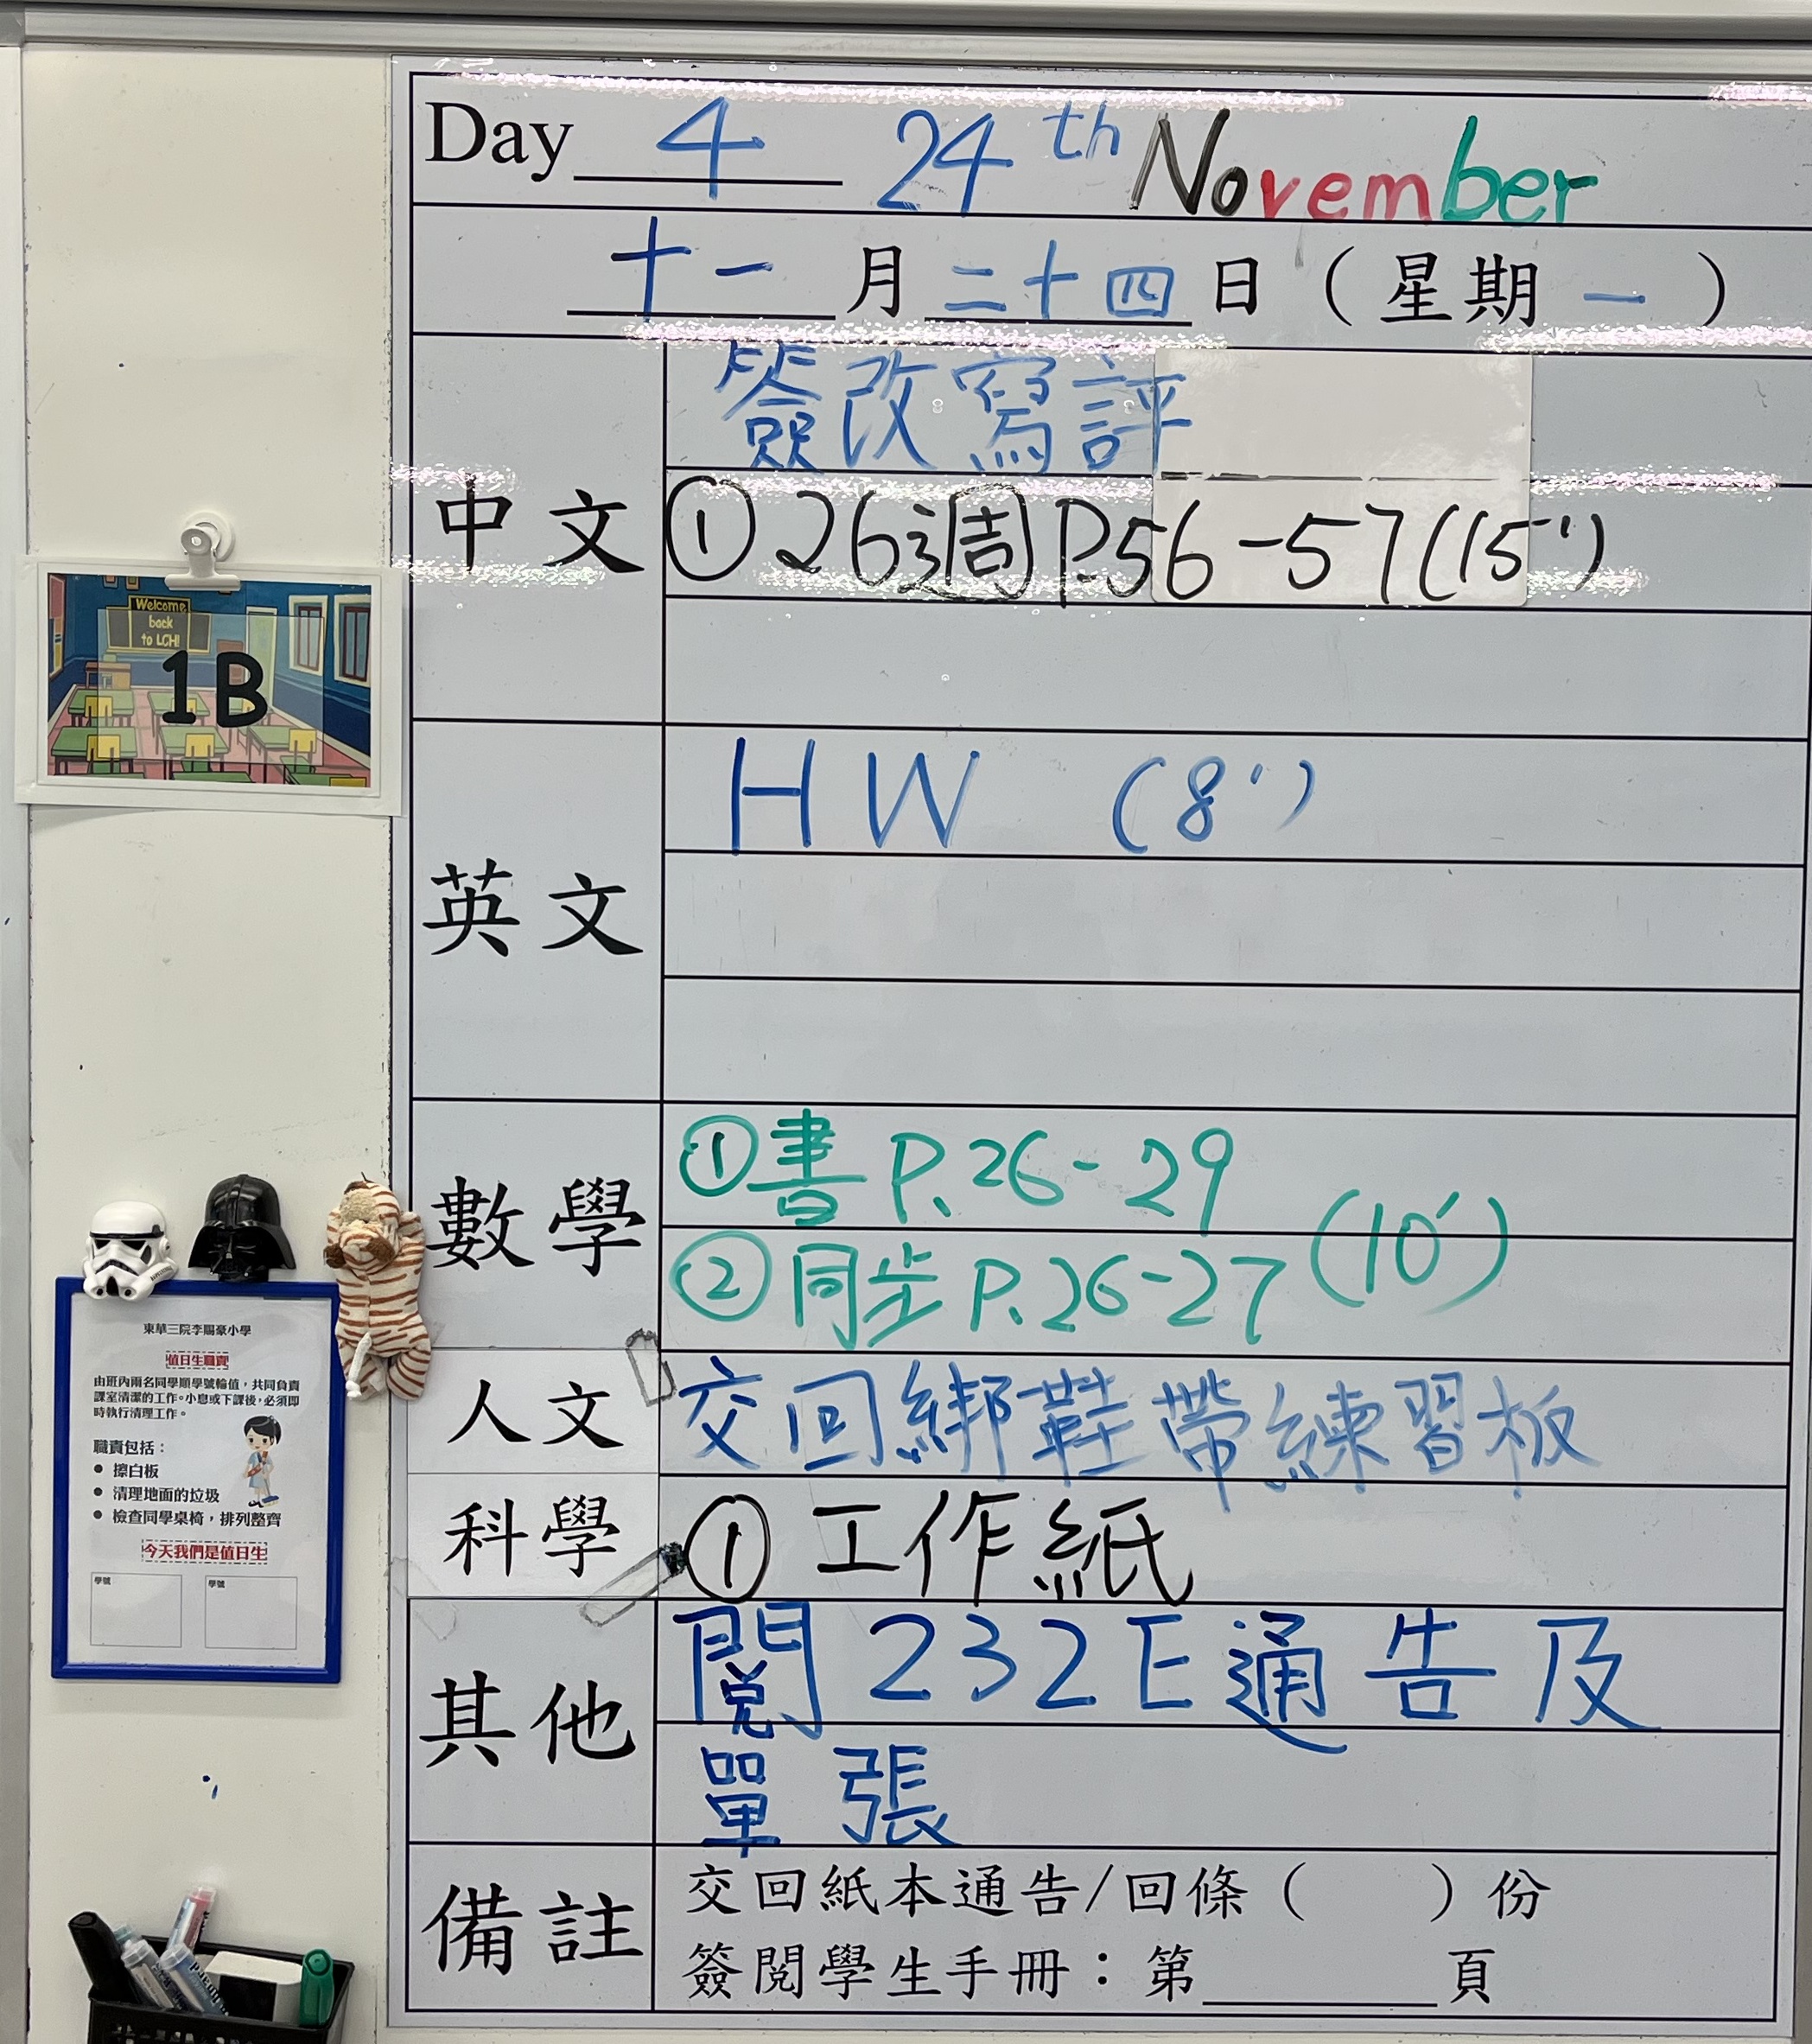 Day 4 24th November
十一月二十四日（星期一）
中文
簽改寫評
① 26週 P.56-57(15')
英文
HW (8')
數學
①書 P.26-29
②同步 P.26-27 (10')
人文
交回綁鞋帶練習板
科學
① 工作紙
其他
閱232E通告及
單張
備註
交回紙本通告/回條（ ）份
簽閱學生手冊：第______頁
Welcome
back
to LCH!
1B
東華三院李賜豪小學
值日生職責
由班內兩名同學順學號輪值，共同負責
課室清潔的工作。小息或下課後，必須即
時執行清理工作。
職責包括：
● 擦白板
● 清理地面的垃圾
● 檢查同學桌椅，排列整齊
今天我們是值日生
學號 學號